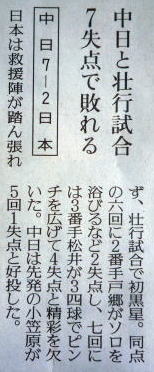 中日と壮行試合
7失点で敗れる
中日7―2日本
日本は救援陣が踏ん張れ
ず、壮行試合で初黒星。同点
の六回に2番手戸郷がソロを
浴びるなど2失点し、七回に
は3番手松井が3四球でピン
チを広げて4失点と精彩を欠
いた。中日は先発の小笠原が
5回1失点と好投した。